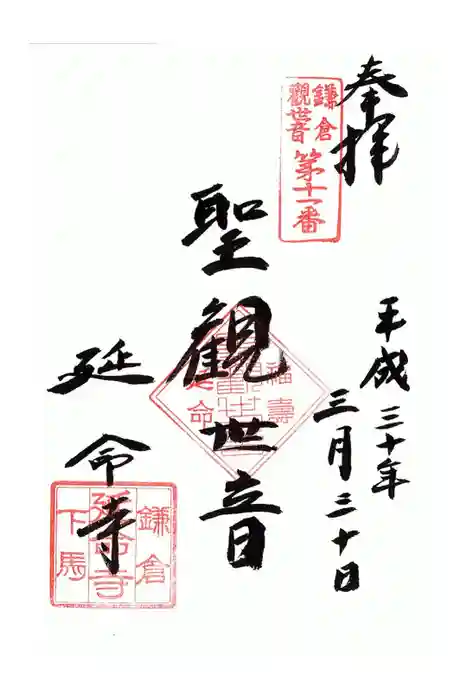 奉拝
鎌倉
觀世音
第十一番
平成三十年
三月三十日
聖觀世音
福壽
延命寺
鎌倉
延命寺
下馬